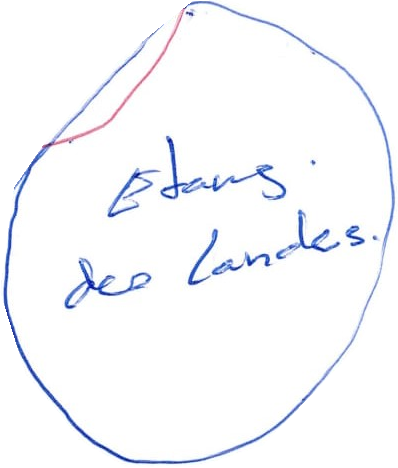 Etang.
des Landes.